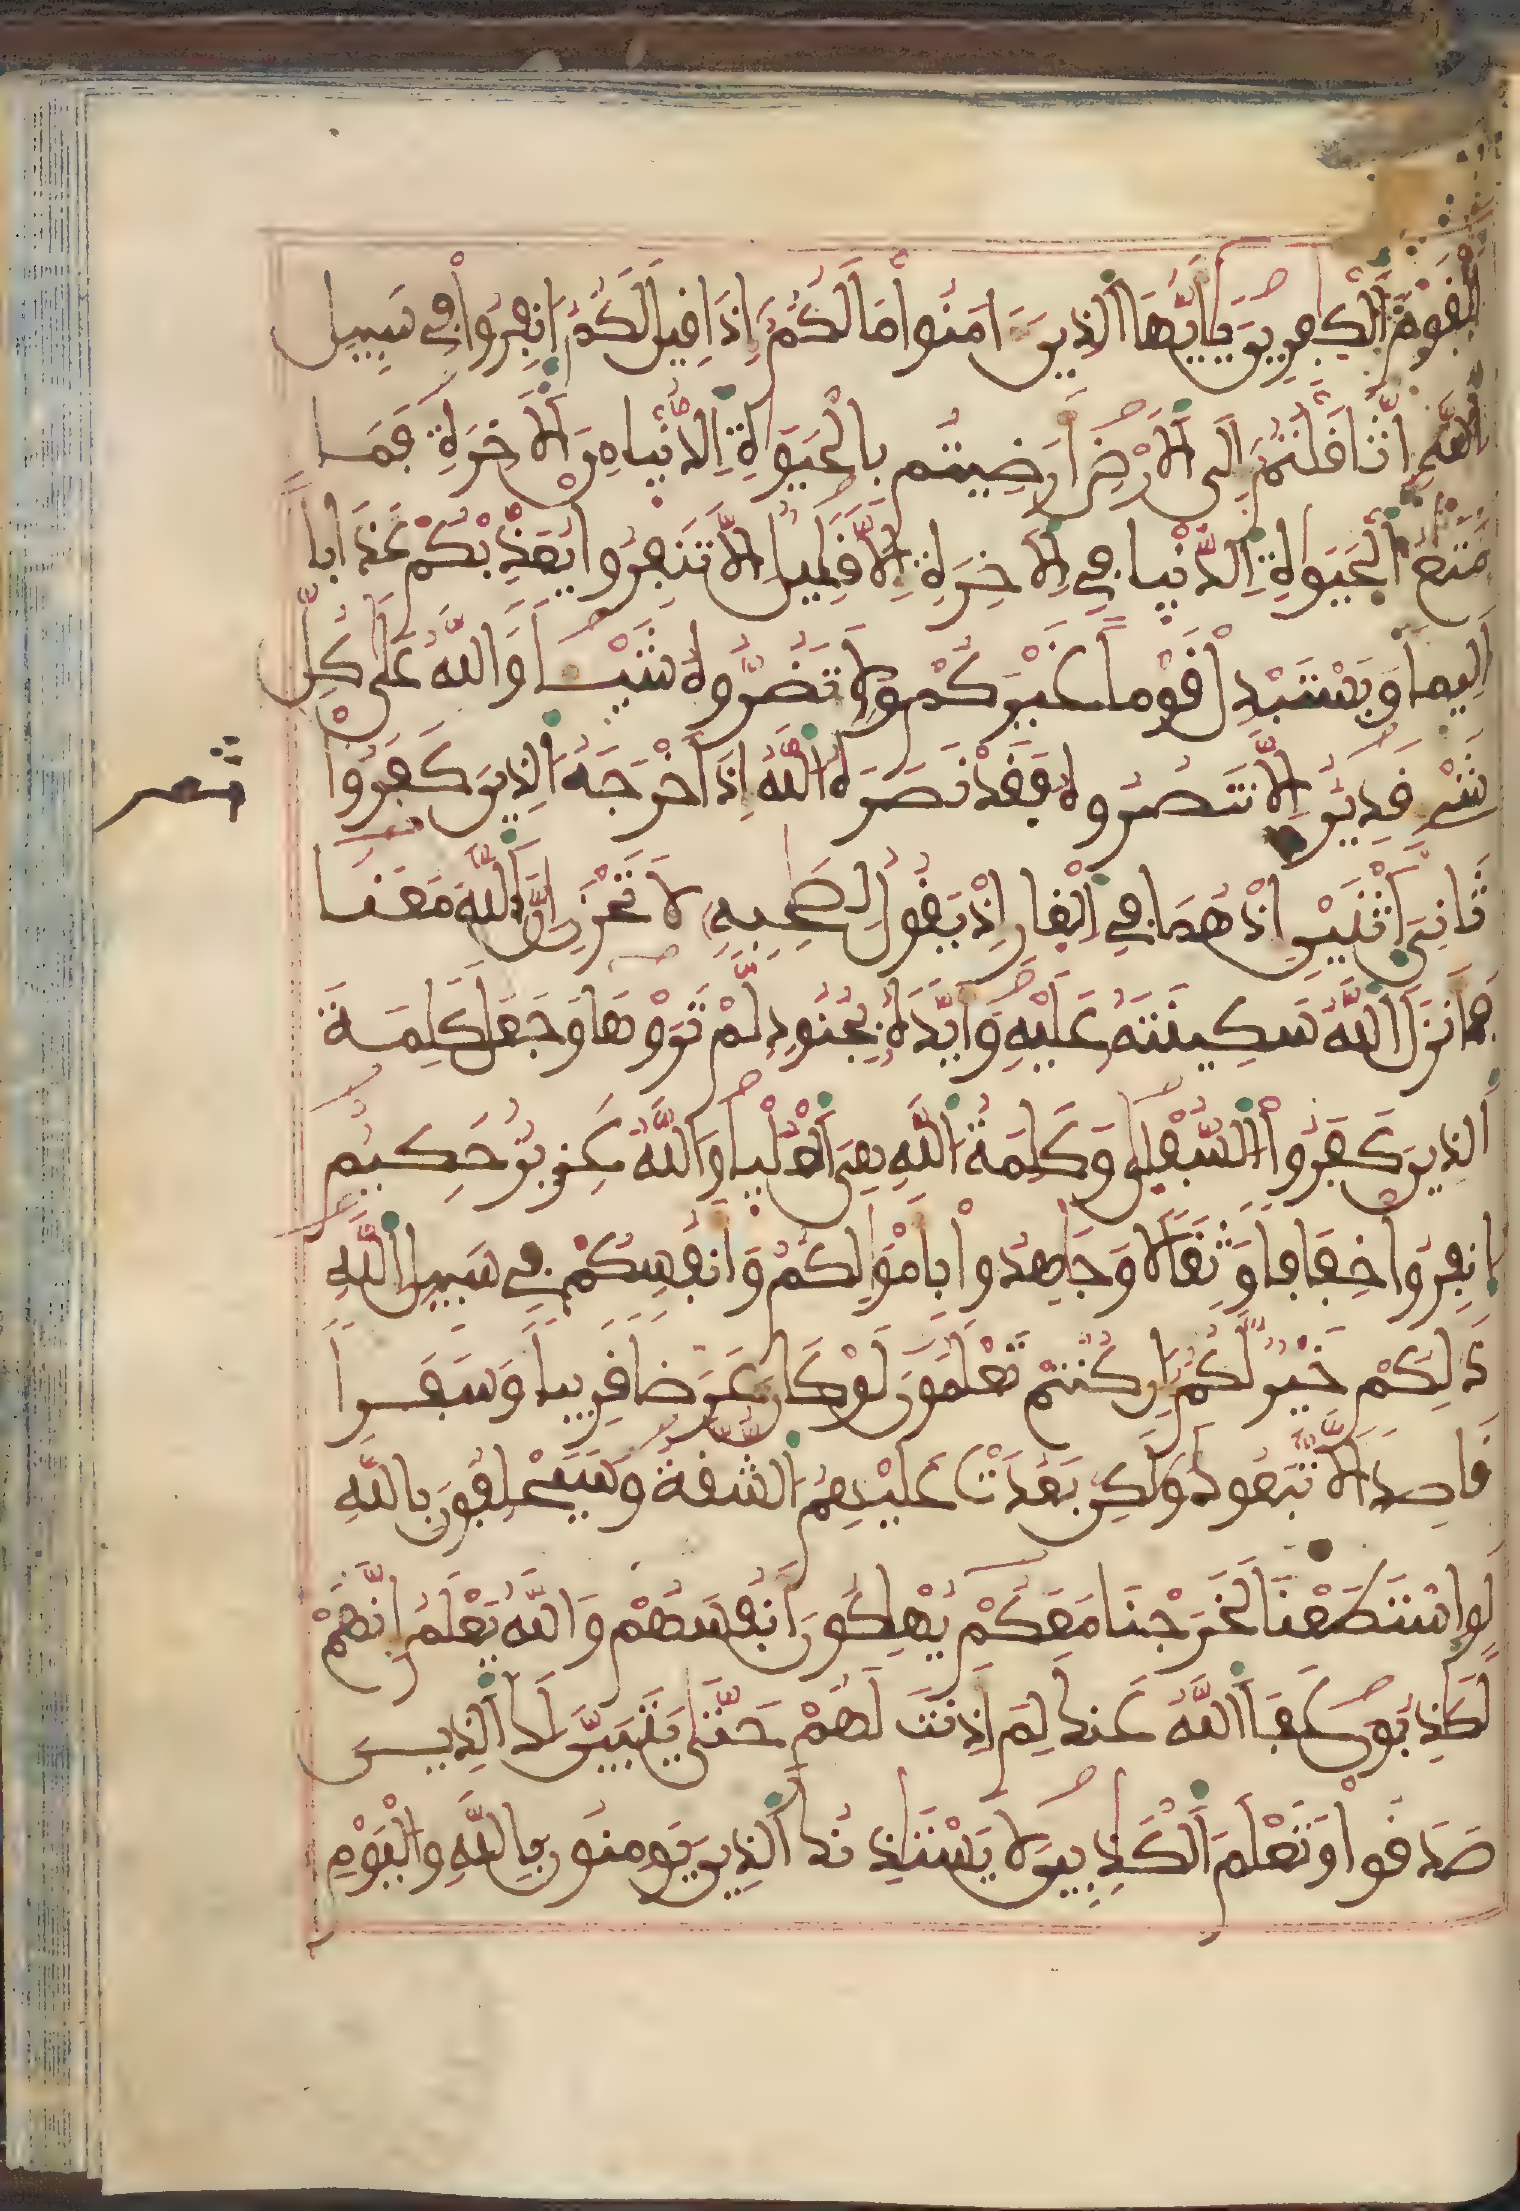 القوم الكفرين يايها الذين امنوا ما لكم إذا قيل لكم انفروا في سبيل
الله اثاقلتم إلى الارض أرضيتم بالحيوة الدنيا من الاخرة فما
متع الحيوة الدنيا في الاخرة إلا قليل الا تنفروا يعذبكم عذابا
اليما ويستبدل قوما غيركم ولا تضروه شيـا والله على كل
شيء قدير الا تنصروه فقد نصره الله إذ اخرجه الذين كفروا
ثمن
ثاني اثنين إذ هما في الغار إذ يقول لصحبه لا تحزن إن الله معنا
فانزل الله سكينته عليه وايده بجنود لم تروها وجعل كلمة
الذين كفروا السفلى وكلمة الله هي العليا والله عزيز حكيم
انفروا خفافا وثقالا وجهدوا باموالكم وانفسكم في سبيل الله
ذلكم خير لكم إن كنتم تعلمون لو كان عرضا قريبا وسفرا
قاصدا لاتبعوك ولكن بعدت عليهم الشقة وسيحلفون بالله
لو استطعنا لخرجنا معكم يهلكون أنفسهم والله يعلم إنهم
لكذبون عفا الله عنك لم أذنت لهم حتى يتبين لك الذين
صدقوا وتعلم الكذبين لا يستـذنك الذين يومنون بالله واليوم